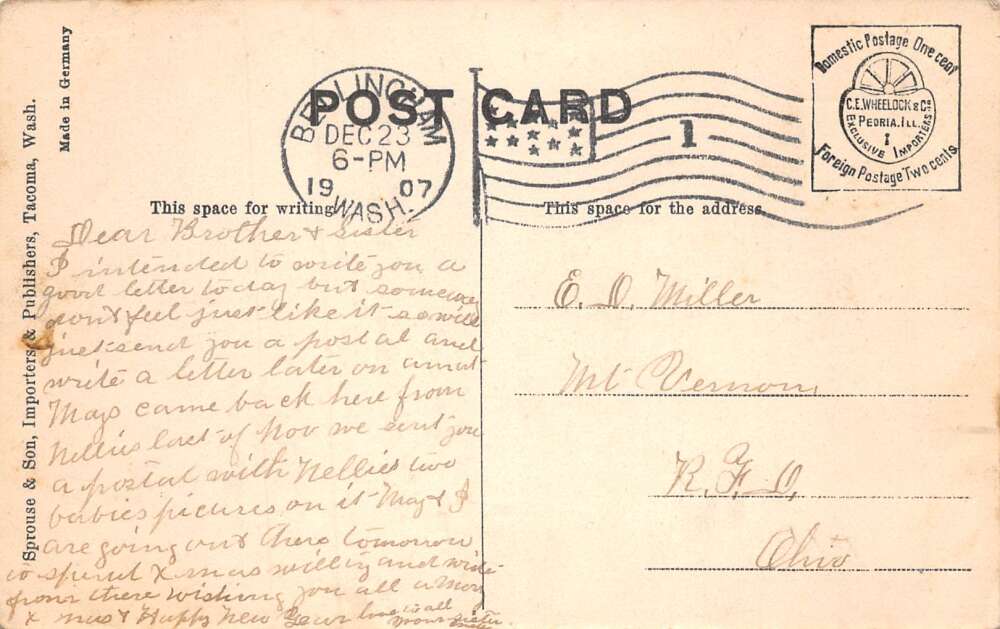 Made in Germany
Sprouse & Son, Importers & Publishers, Tacoma, Wash.
POST CARD
BELLINGHAM
DEC 23
6-PM
1907
WASH.
1
Domestic Postage One cent
C.E. WHEELOCK & Co
PEORIA. ILL.
I
EXCLUSIVE IMPORTERS
Foreign Postage Two cents
This space for writing
This space for the address.
Dear Brother & Sister
I intended to write you a
good letter today but someway
don't feel just like it so will
just send you a postal and
write a letter later on
May came back here from
Nellies last of Nov we sent you
a postal with Nellies two
babies pictures on it May & I
are going out there tomorrow
to spend X mas will try and write
from there wishing you all a Mery
X mas & Happy New Year love to all
your sister
E. D. Miller
Mt Vernon,
R. F. D.
Ohio